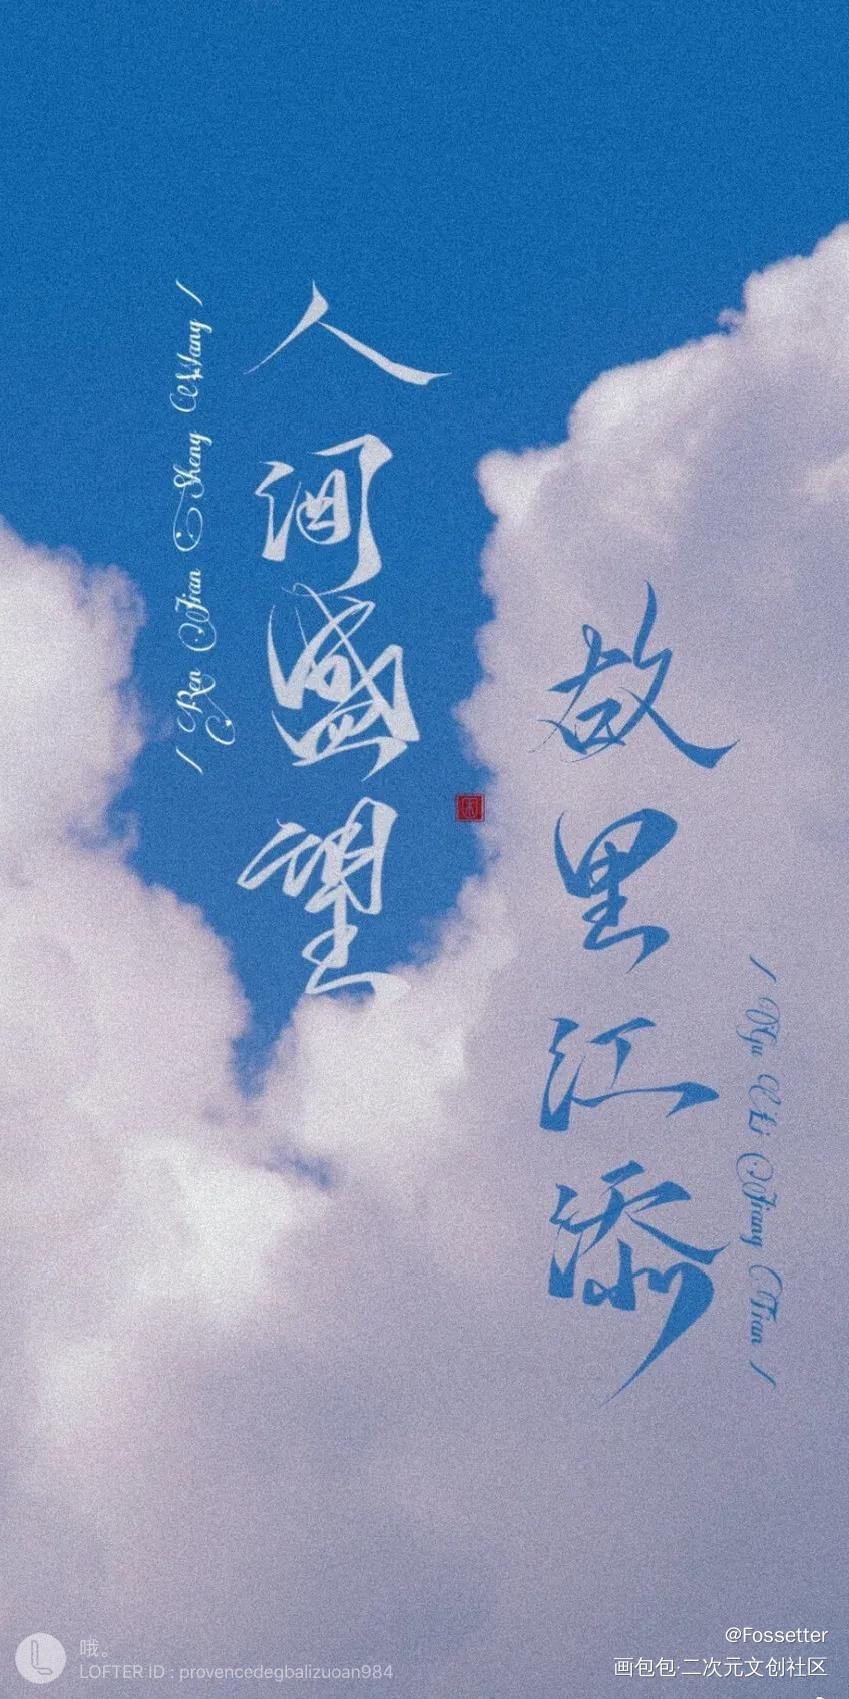 人间盛望
/ Ren Jian Sheng Wang /
故里江添
/ Gu Li Jiang Tian /
哦。
LOFTER ID : provencedegbalizuoan984
@Fossetter
画包包·二次元文创社区